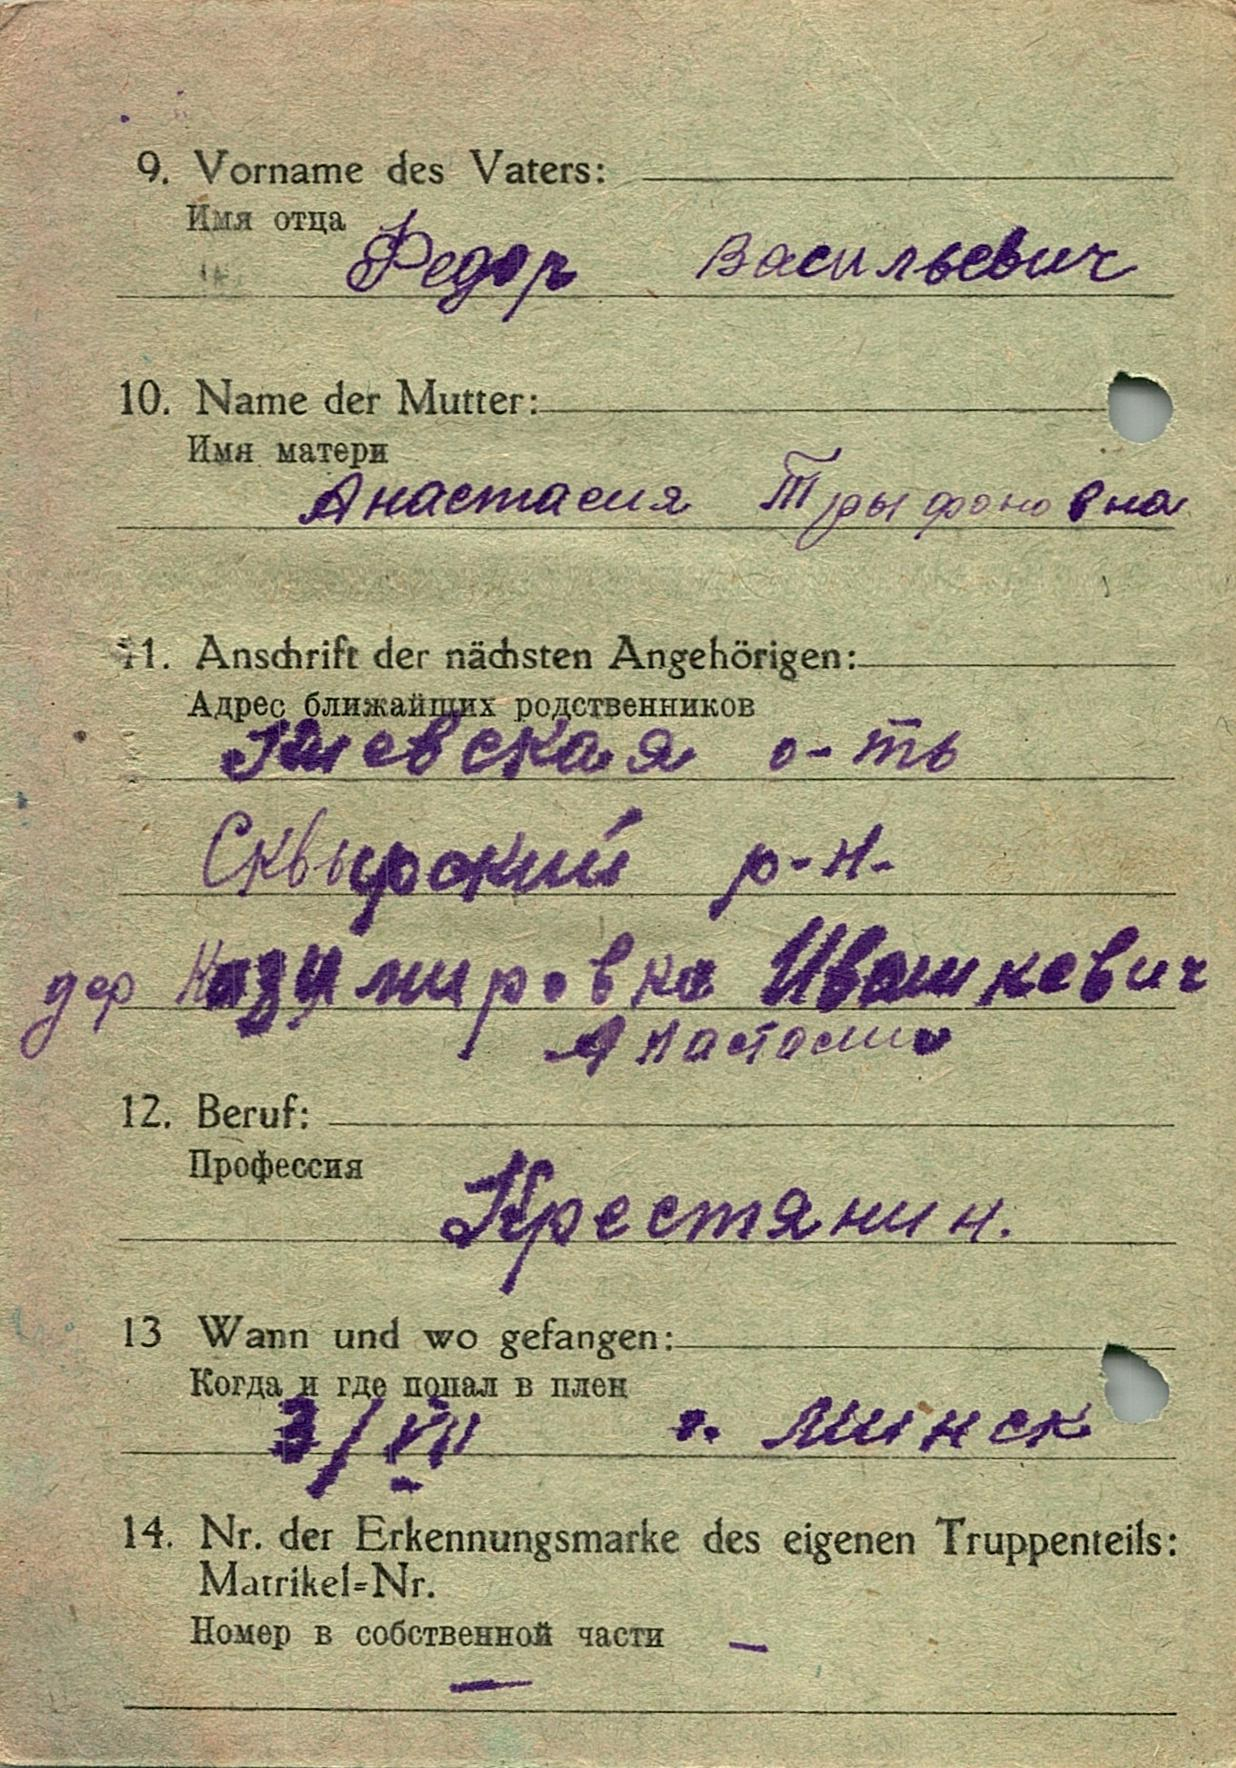 9. Vorname des Vaters:
Имя отца
Федор Васильевич
10. Name der Mutter:
Имя матери
Анастасия Трыфоновна
11. Anschrift der nächsten Angehörigen:
Адрес ближайщих родственников
Киевская о-ть
Сквырский р-н.
дер Казимировка Ивашкевич
Анастасии
12. Beruf:
Профессия
Крестянин.
13 Wann und wo gefangen:
Когда и где попал в плен
3/VII г. Минск
14. Nr. der Erkennungsmarke des eigenen Truppenteils:
Matrikel=Nr.
Номер в собственной части –
—